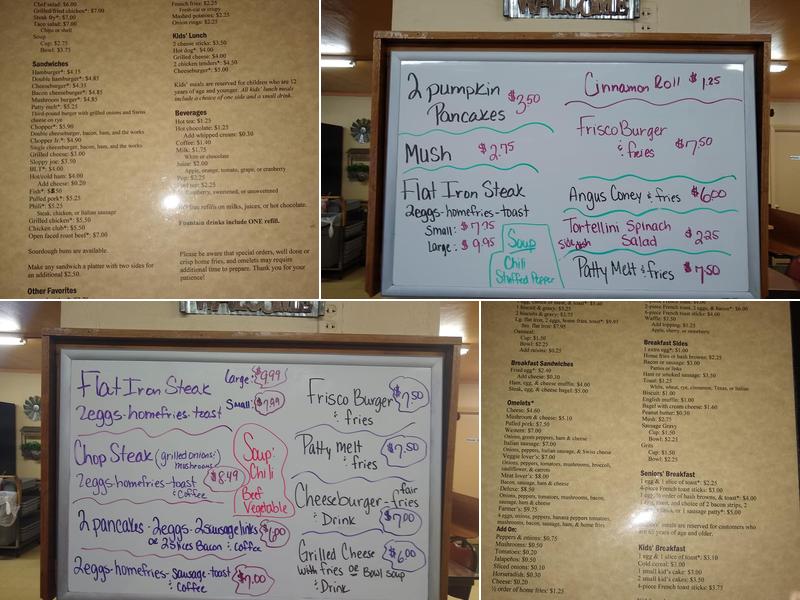 Chef salad* $6.00
Grilled/fried chicken* $7.00
Steak fry* $7.00
Taco salad $7.00
Chips or shell
Soup
Cup: $2.75
Bowl: $3.75
Sandwiches
Hamburger*: $4.15
Double hamburger*: $4.85
Cheeseburger*: $4.35
Bacon cheeseburger*: $4.85
Mushroom burger*: $4.85
Patty melt*: $5.25
Third-pound burger with grilled onions and Swiss
cheese on rye
Chopper*: $5.90
Double cheeseburger, bacon, ham, and the works
Chopper Jr.*: $4.90
Single cheeseburger, bacon, ham, and the works
Grilled cheese: $3.00
Sloppy joe: $3.50
BLT*: $4.00
Hot/cold ham: $4.00
Add cheese: $0.20
Pulled pork*: $5.25
Phili*: $5.25
Steak, chicken, or Italian sausage
Grilled chicken*: $5.50
Chicken club*: $5.50
Open faced roast beef*: $7.00
Sourdough buns are available.
Make any sandwich a platter with two sides for
an additional $2.50.
Other Favorites
French fries: $2.25
Fresh-cut or crispy
Mashed potatoes: $2.25
Onion rings: $2.25
Kids' Lunch
2 cheese sticks: $3.50
Hot dog*: $4.00
Grilled cheese: $4.00
2 chicken tenders*: $4.50
Cheeseburger*: $5.00
Kids' meals are reserved for children who are 12
years of age and younger. All kids' lunch meals
include a choice of one side and a small drink.
Beverages
Hot tea: $1.25
Hot chocolate: $1.25
Add whipped cream: $0.30
Coffee: $1.40
Milk: $1.75
White or chocolate
Juice: $2.00
Apple, orange, tomato, grape, or cranberry
Pop: $2.25
Iced tea: $2.25
Raspberry, sweetened, or unsweetened
No free refills on milks, juices, or hot chocolate.
Fountain drinks include ONE refill.
Please be aware that special orders, well done or
crisp home fries, and omelets may require
additional time to prepare. Thank you for your
patience!
WELCOME
2 pumpkin
Pancakes $3.50
Mush $2.75
Flat Iron Steak
2eggs-homefries-toast
Small: $7.75
Large: $9.95
Soup
Chili
Stuffed Pepper
Cinnamon Roll $1.25
Frisco Burger
& fries $7.50
Angus Coney & fries $6.00
Tortellini Spinach
side dish Salad $2.25
Patty Melt & fries $7.50
Flat Iron Steak Large: $9.99
2eggs-homefries-toast Small: $7.99
Chop Steak (grilled onions &
mushrooms)
2eggs-homefries-toast $8.49
& Coffee
Soup:
Chili
Beef
Vegetable
2 pancakes-2eggs-2sausage links
or 2 slices Bacon & Coffee
2eggs-homefries-sausage-toast
& Coffee $7.00
Frisco Burger $7.50
& fries
Patty melt $7.50
& fries
Cheeseburger-fair
fries
& Drink $7.00
Grilled Cheese $6.00
with fries or Bowl Soup
& Drink
1 biscuit & gravy: $3.25
2 biscuits & gravy: $3.75
Lg. flat iron, 2 eggs, home fries, toast*: $9.95
Sm. flat iron: $7.95
Oatmeal:
Cup: $1.50
Bowl: $2.25
Add raisins: $0.25
Breakfast Sandwiches
Fried egg*: $2.40
Add cheese: $0.30
Ham, egg, & cheese muffin: $4.00
Steak, egg, & cheese bagel: $5.00
Omelets*
Cheese: $4.60
Mushroom & cheese: $5.10
Pulled pork: $7.50
Western: $7.00
Onions, green peppers, ham & cheese
Italian sausage: $7.00
Onions, peppers, Italian sausage, & Swiss cheese
Veggie lover's: $7.00
Onions, peppers, tomatoes, mushrooms, broccoli,
cauliflower, & carrots
Meat lover's: $8.00
Bacon, sausage, ham & cheese
Deluxe: $8.50
Onions, peppers, tomatoes, mushrooms, bacon,
sausage, ham & cheese
Farmer's: $9.75
4 eggs, onions, peppers, banana peppers, tomatoes,
mushrooms, bacon, sausage, ham, & home fries
Add On:
Peppers & onions: $0.75
Mushrooms: $0.50
Tomatoes: $0.20
Jalapeños: $0.50
Sliced onions: $0.10
Horseradish: $0.30
Cheese: $0.20
½ order of home fries: $1.25
2-piece French toast, 2 eggs, & bacon*: $6.00
6-piece French toast sticks: $4.00
Waffle: $3.50
Add topping: $1.25
Apple, cherry, or strawberry
Breakfast Sides
1 extra egg*: $1.00
Home fries or hash browns: $2.25
Bacon or sausage: $3.00
Patties or links
Ham or smoked sausage: $3.50
Toast: $1.25
White, wheat, rye, cinnamon, Texas, or Italian
Biscuit: $1.00
English muffin: $1.00
Bagel with cream cheese: $1.60
Peanut butter: $0.30
Mush: $2.75
Sausage Gravy
Cup: $1.50
Bowl: $2.25
Grits
Cup: $1.50
Bowl: $2.25
Seniors' Breakfast
1 egg & 1 slice of toast*: $2.25
4-piece French toast sticks: $3.00
1 egg, ½ order of hash browns, & toast*: $4.00
1 egg, toast, and choice of 2 bacon strips, 2
or 1 sausage patty*: $5.00
meals are reserved for customers who
are 65 years of age and older.
Kids' Breakfast
1 egg & 1 slice of toast*: $3.10
Cold cereal: $3.00
1 small kid's cake: $3.00
2 small kid's cakes: $3.50
4-piece French toast sticks: $3.75